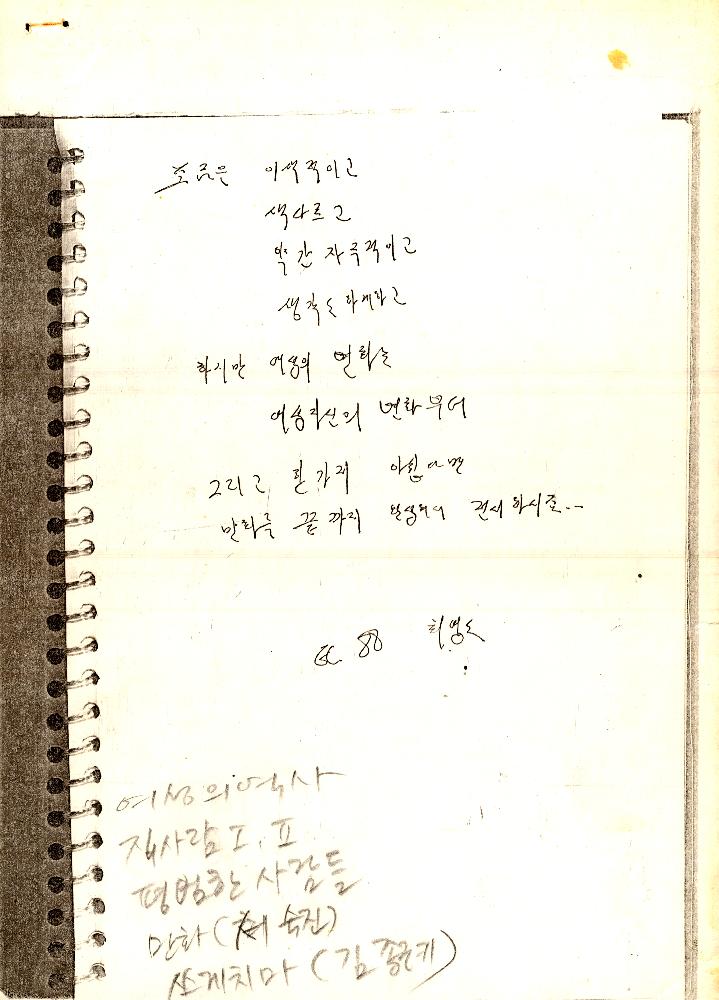 조금은 이색적이고
색다르고
약간 자극적이고
생각도 하게하고
하지만 여성의 변화는
여성자신의 변화부터
그리고 한가지 아쉼다면
만화를 끝까지 완성하여 전시하시죠...
88 최영도
여성의 역사
집사람 I, II
평범한 사람들
만화 ( 숙진)
쓰게치마 (김종규)